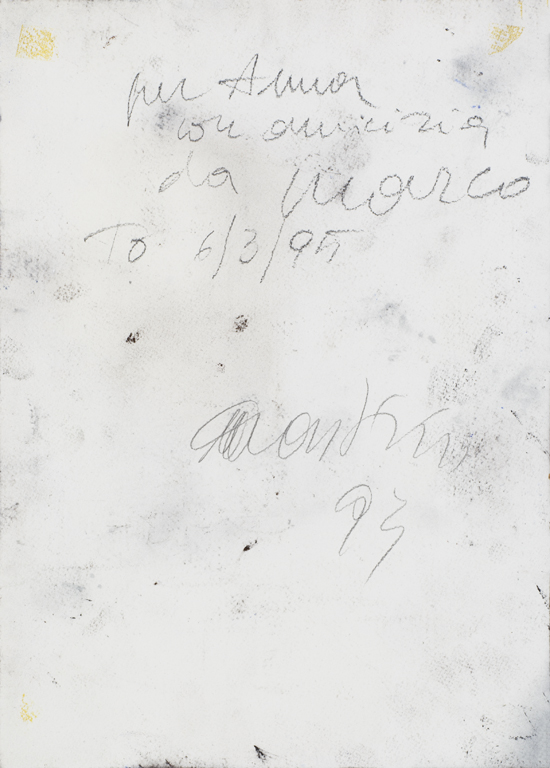 per Anna
con amicizia
da Marco
To 6/3/95
93